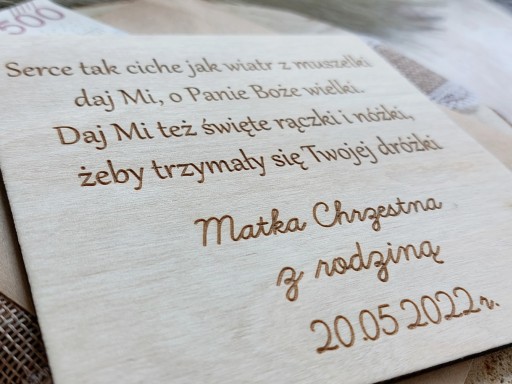 500
Serce tak ciche jak wiatr z muszelki
daj Mi, o Panie Boże wielki.
Daj Mi też święte rączki i nóżki,
żeby trzymały się Twojej dróżki
Matka Chrzestna
z rodziną
20.05.2022r.